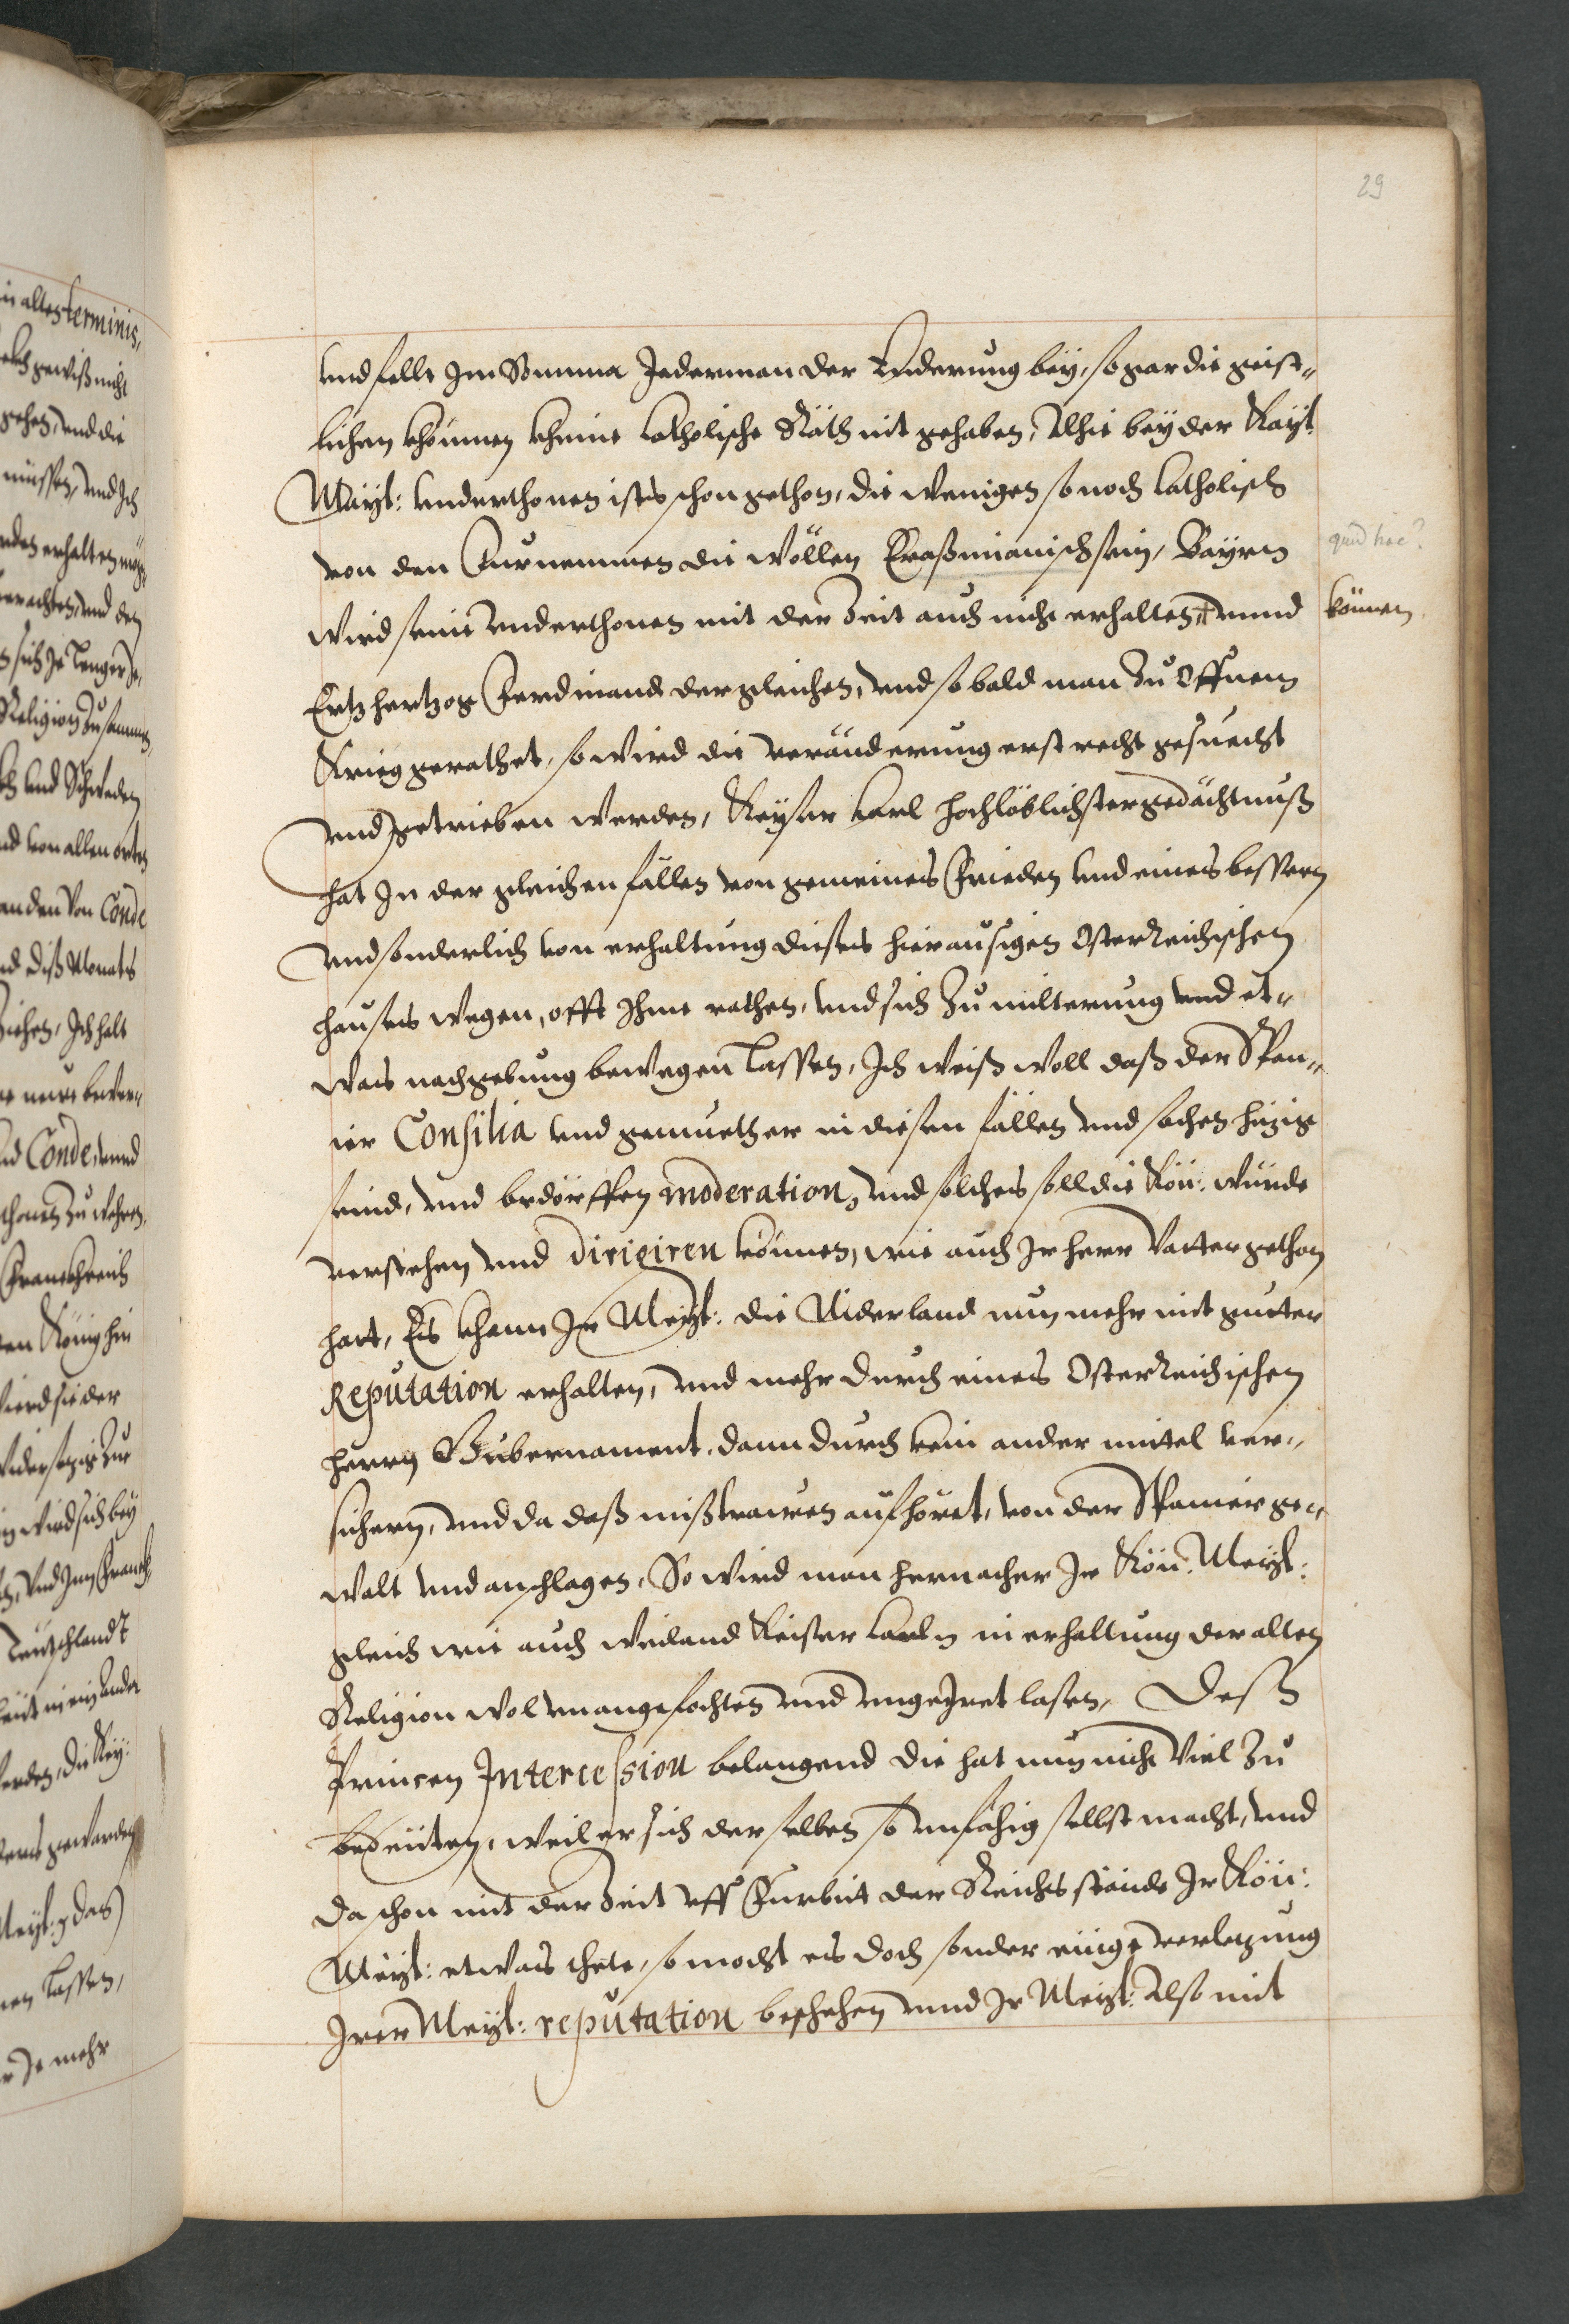 29
vnd fellt Im Somma Jederman der Enderung bey, so gar die geist„
lichen khönnen kheine Catholische Räth nit gehaben, Alhie bey der Kayl:
Mayt: Vnderthonen ists schon gethon, die wenigen so noch Catholisch
von den Furnemmen die wöllen Eraßmianisch sein, Bayrn
quid hoc?
wird seine Vnderthonen mit der Zeit auch nicht erhalten + vnnd
können
Ertzhertzog Ferdinand dergleichen, vnd so bald man zu Offnem
Krieg gerathet, so wird die veränderung erst recht gesuecht
vnd getrieben werden, Keyser Carl hochlöblichster gedächtnuß
hat In der gleichen fällen von gemeines Frieden vnd eines bessern
vnd sonderlich von erhaltung dieses hieraussigen Osterreichischen
hauses wegen, offt Ihme rathen, vnd sich zu milterung vnd et„
was nachgebung bewegen lassen, Ich weiß woll daß der Span„
ier Consilia vnd gemuether in diesen fällen vnd sachen hitzig
seind, vnd bedörffen moderation, vnd solches soll die Kön: würde
verstehen vnd dirigiren können, wie auch Ir herr Vatter gethon
hatt, Es khann Ir Mayt: die Niderland nun mehr mit gutter
Reputation erhalten, vnd mehr durch eines Osterreichischen
herrn Gubernament, dann durch kein ander mittel ver„
sichern, vnd da daß mißtrawen aufhöret, von der Spanier ge„
walt vnd anschlagen, So wird man hernacher Ir Kön: Mayt:
gleich wie auch weiland Keiser Carln in erhaltung der alten
Religion wol vnangefochten vnd vngeIret lasen, Deß
Princen Intercession belangend die hat nun nicht viel zu
bedeuten, weil er sich derselben so vnfähig selbst macht, vnd
da schon mit der Zeit vff Furbit der Reichsstände Ir Kön:
Mayt: etwas thete, so mocht es doch sonder einige verletzung
Irer Mayt: reputation beschehen vnnd Ir Mayt: Also mit